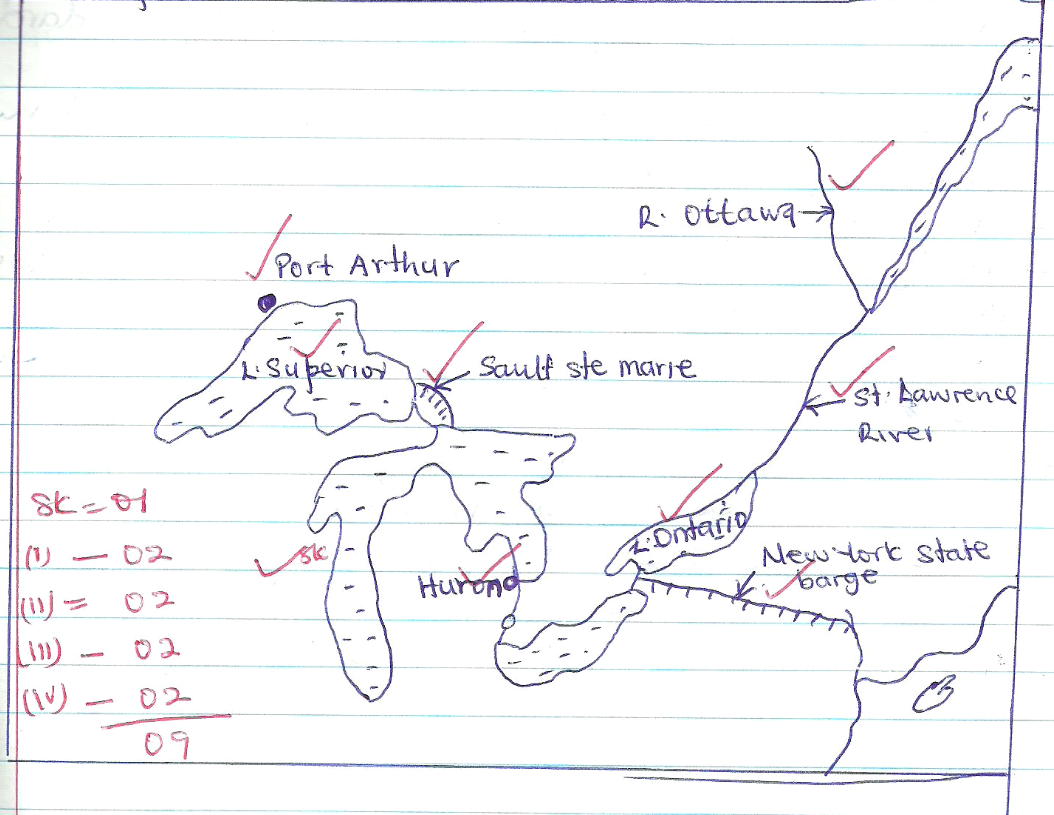 R. Ottawa
Port Arthur
L. Superior
Sault ste marie
St. Lawrence
River
L. Ontario
New York State
barge
Huron
sk
sk = 01
(i) — 02
(ii) = 02
(iii) — 02
(iv) — 02
09